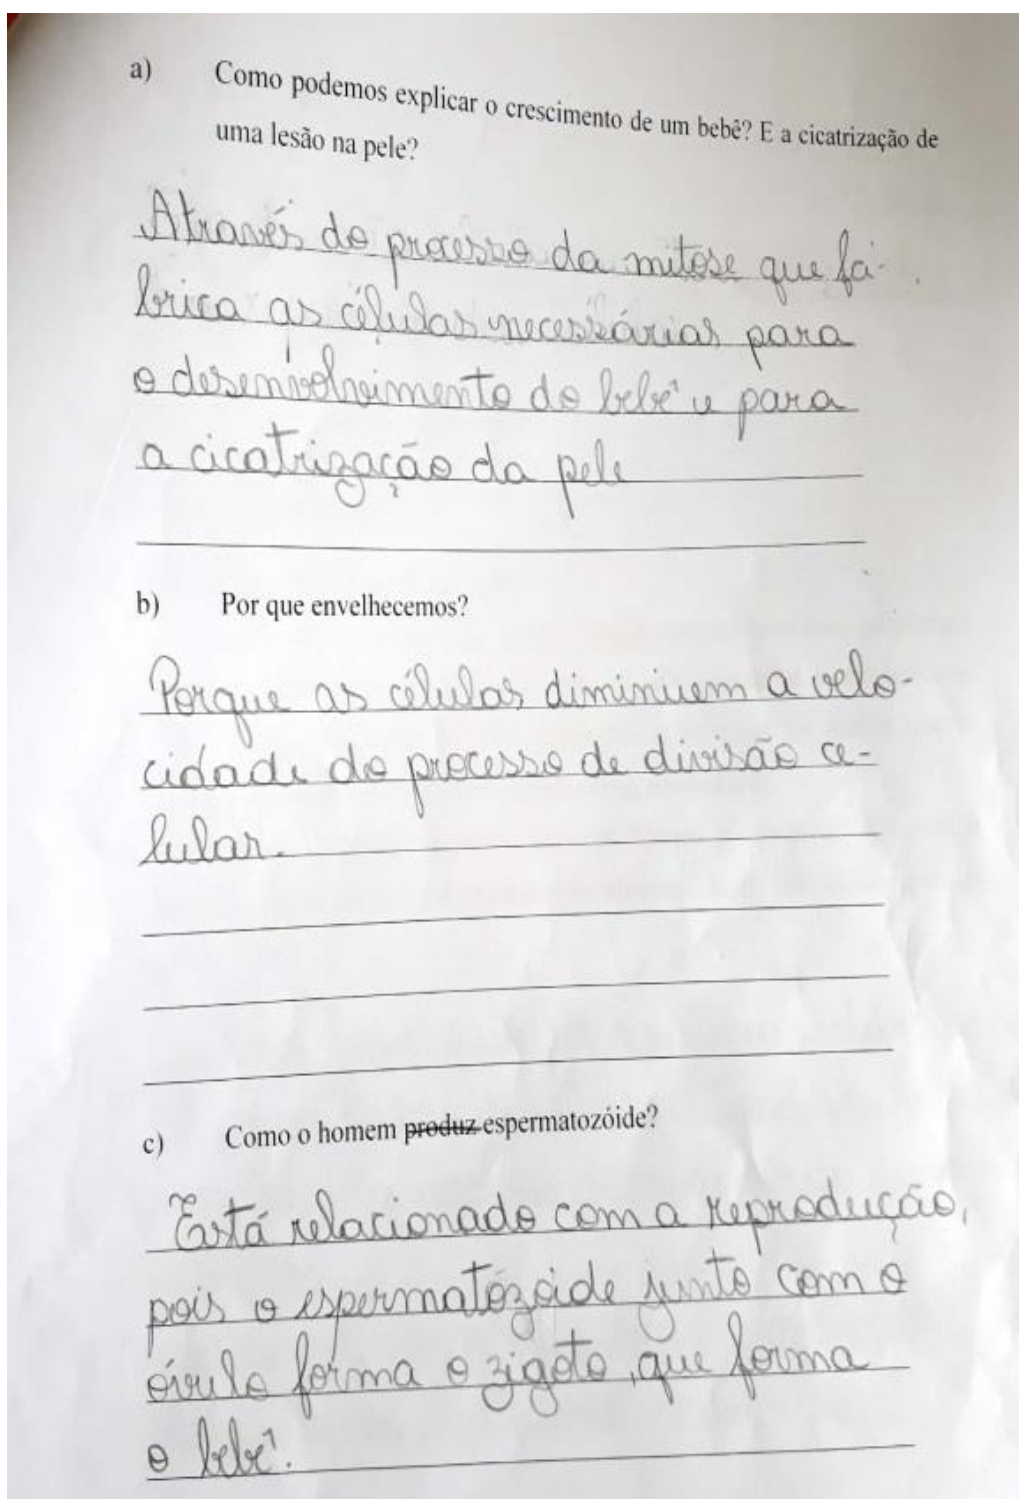 a) Como podemos explicar o crescimento de um bebê? E a cicatrização de
uma lesão na pele?
Através do processo da mitose que fá-
brica as células necessárias para
o desenvolvimento do bebê e para
a cicatrização da pele
b) Por que envelhecemos?
Porque as células diminuem a velo-
cidade do processo de divisão ce-
lular.
c) Como o homem produz espermatozóide?
Está relacionado com a reprodução,
pois o espermatozoide junto com o
óvulo forma o zigoto, que forma
o bebê.